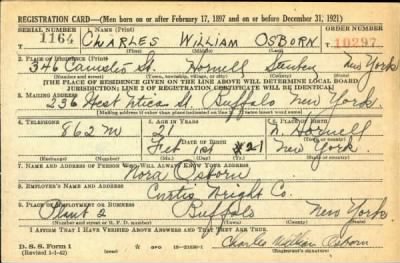 REGISTRATION CARD—(Men born on or after February 17, 1897 and on or before December 31, 1921)
SERIAL NUMBER 1. NAME (Print) ORDER NUMBER
1164 CHARLES WILLIAM OSBORN 10297
(First) (Middle) (Last)
2. PLACE OF RESIDENCE (Print)
346 Canisteo St. Hornell Steuben New York
(Number and street) (Town, township, village, or city) (County) (State)
[THE PLACE OF RESIDENCE GIVEN ON THE LINE ABOVE WILL DETERMINE LOCAL BOARD
JURISDICTION; LINE 2 OF REGISTRATION CERTIFICATE WILL BE IDENTICAL]
3. MAILING ADDRESS
236 West Utica St. Buffalo New York.
[Mailing address if other than place indicated on line 2. If same insert word same]
4. TELEPHONE 5. AGE IN YEARS 6. PLACE OF BIRTH
862 M 21 N. Hornell
DATE OF BIRTH
Feb 1st 21 New York.
(Exchange) (Number) (Mo.) (Day) (Yr.) (State or country)
7. NAME AND ADDRESS OF PERSON WHO WILL ALWAYS KNOW YOUR ADDRESS
Nora Osborn
8. EMPLOYER'S NAME AND ADDRESS
Curtis Wright Co.
9. PLACE OF EMPLOYMENT OR BUSINESS
Plant 2 Buffalo New York
(Number and street or R. F. D. number) (Town) (County) (State)
I AFFIRM THAT I HAVE VERIFIED ABOVE ANSWERS AND THAT THEY ARE TRUE.
D. S. S. Form 1
(Revised 1-1-42) GPO Charles William Osborn
(Registrant's signature)